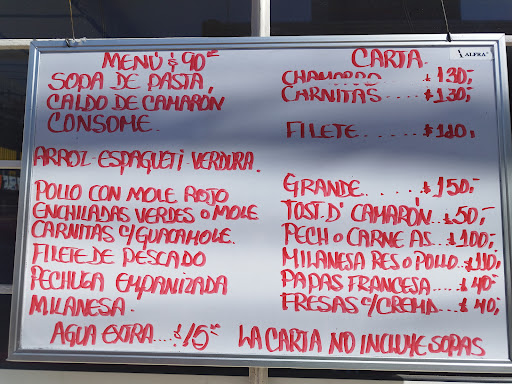 ALFRA
MENÚ $ 90.00
SOPA DE PASTA,
CALDO DE CAMARÓN
CONSOME.
ARROZ-ESPAGUETI-VERDURA.
POLLO CON MOLE ROJO
ENCHILADAS VERDES O MOLE
CARNITAS C/GUACAMOLE.
FILETE DE PESCADO
PECHUGA EMPANIZADA
MILANESA.
AGUA EXTRA....$15.00
CARTA
CHAMORRO....$130,-
CARNITAS....$130,-
FILETE.....$110,-
GRANDE.....$150,-
TOST. D' CAMARÓN..$50,-
PECH O CARNE AS...$100,-
MILANESA RES O POLLO..$110,-
PAPAS FRANCESA...$40,-
FRESAS C/CREMA...$40,-
LA CARTA NO INCLUYE SOPAS